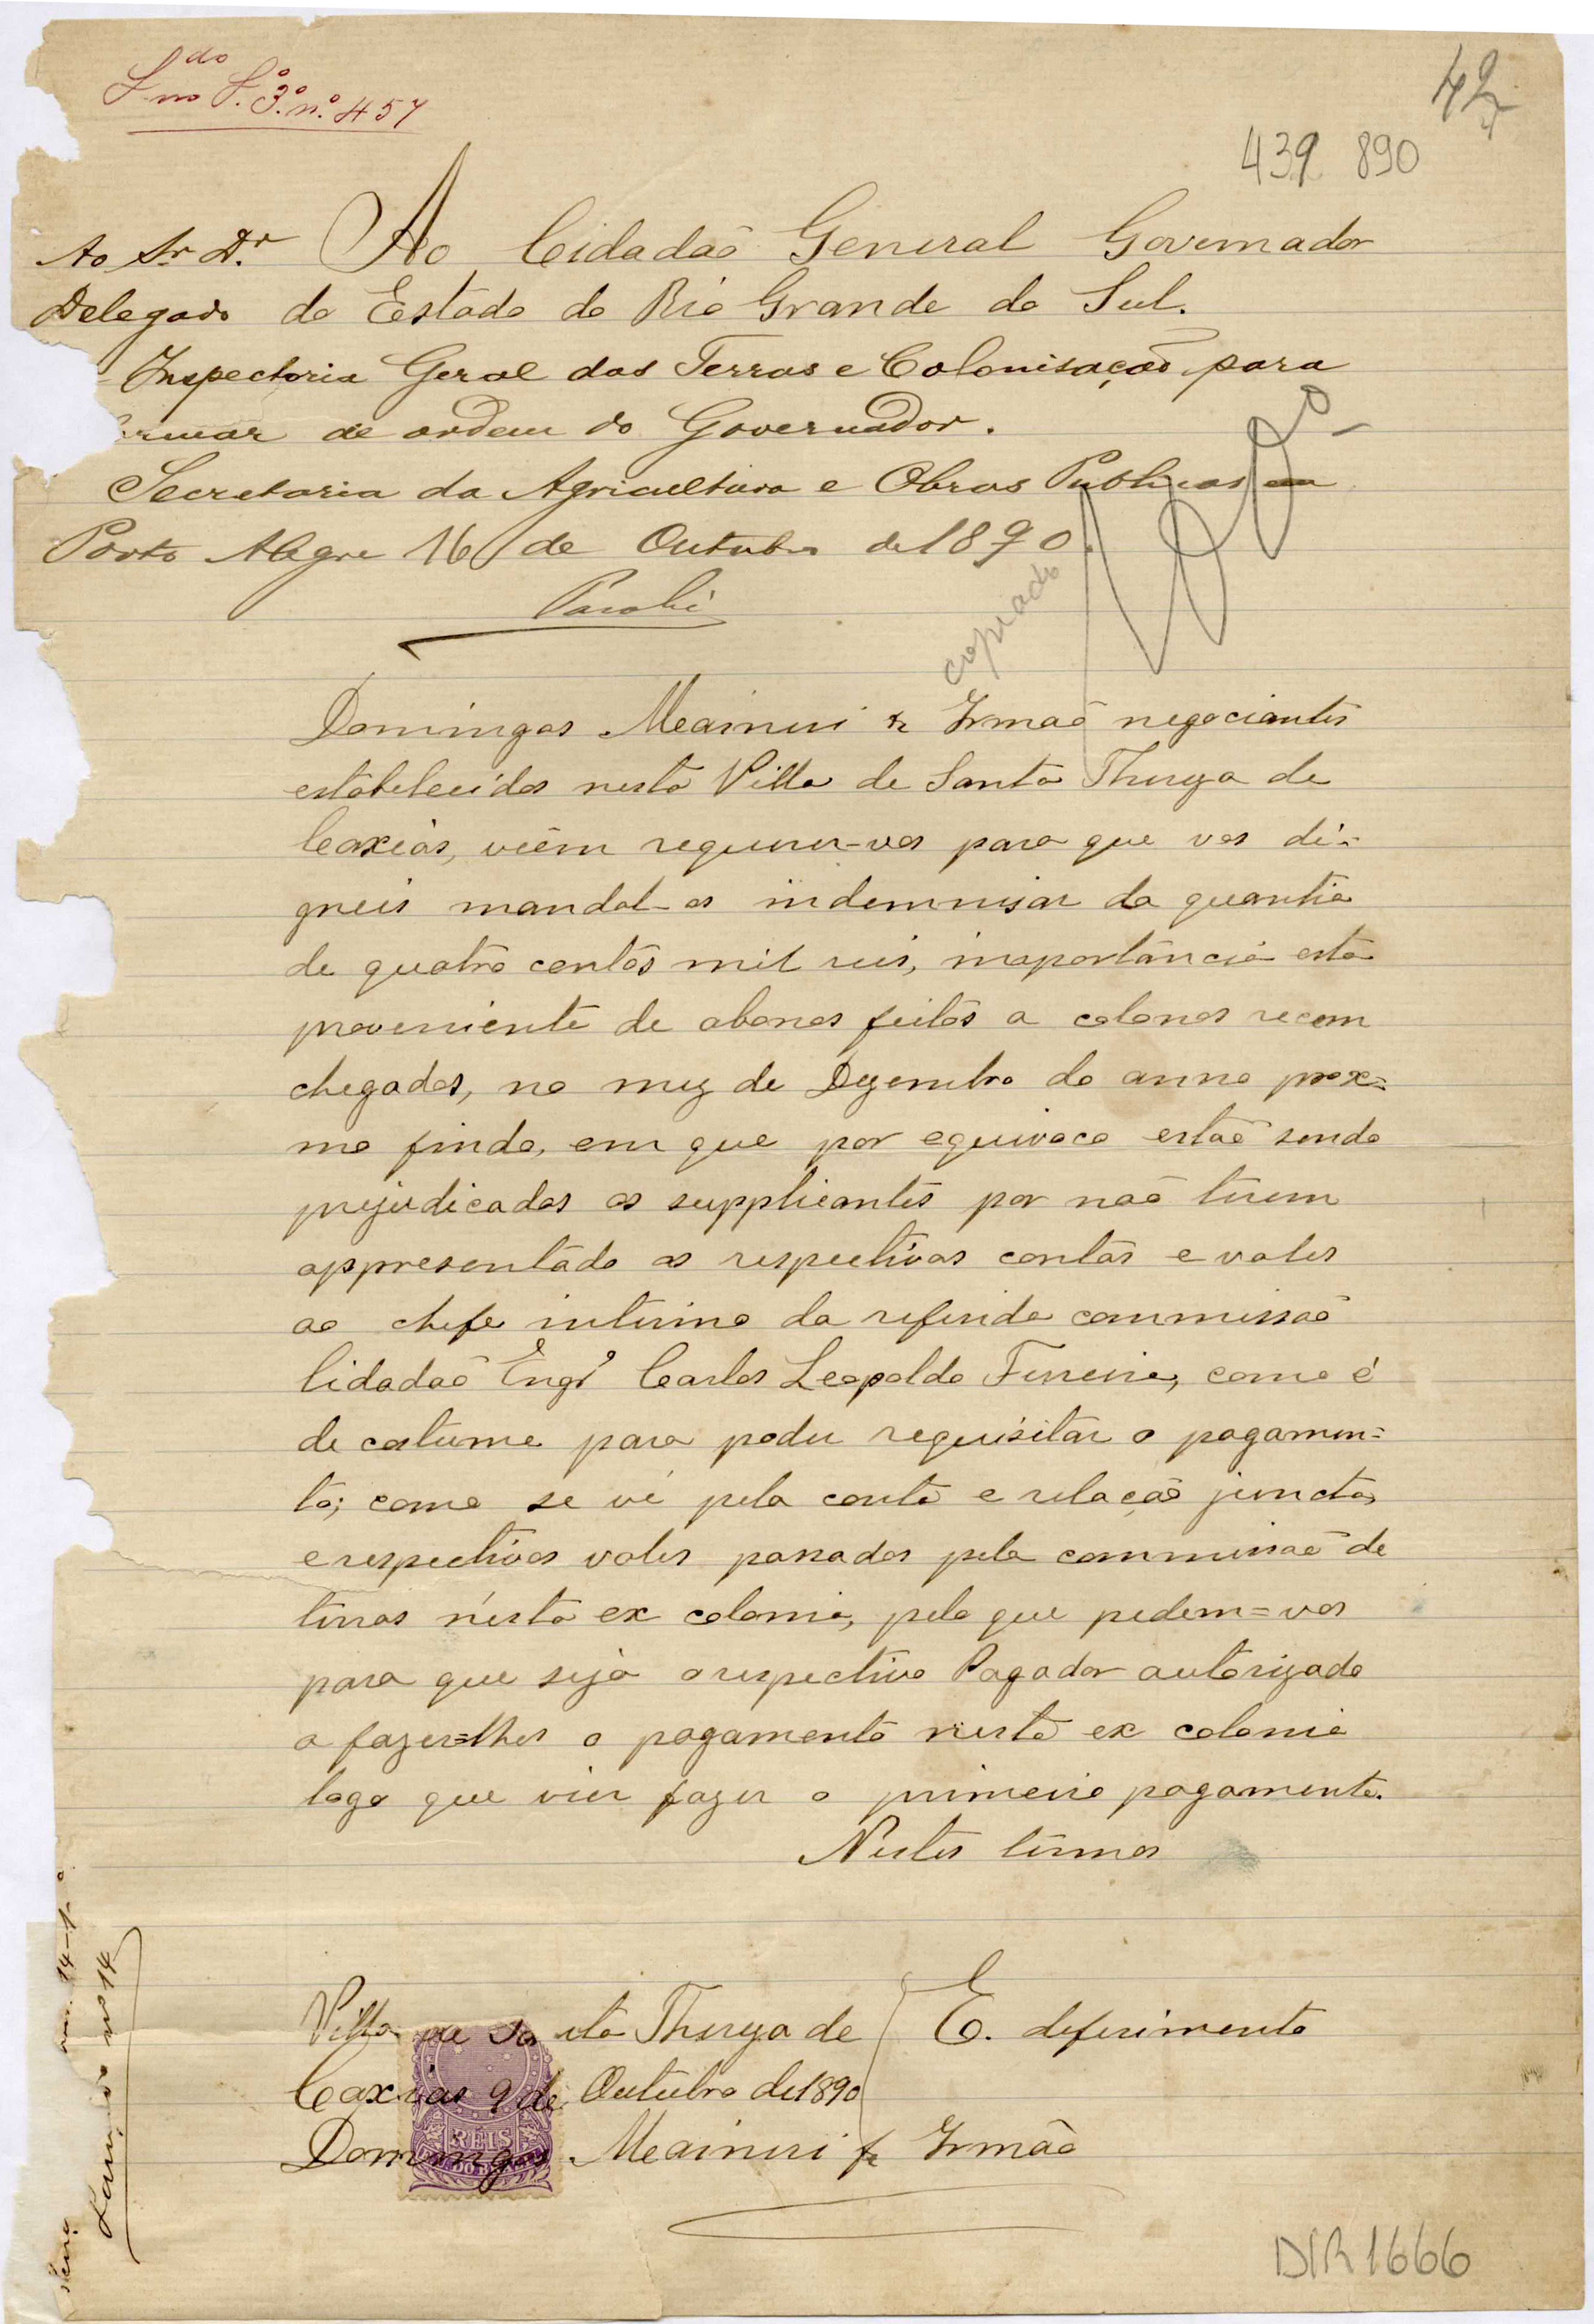 L.do no L.º 3.º n.º 457
42
439 890
Ao Cidadão General Governador
do Estado do Rio Grande do Sul.
Ao Sr. Dr. Delegado
Inspectoria Geral das Terras e Colonisação para
de ordem do Governador.
Secretaria da Agricultura e Obras Publicas em
Porto Alegre 16 de Outubro de 1890.
Parobé
copiado
Domingos Meaineri & Irmaõ negociantes
estabelecidos nesta Villa de Santa Thereza de
Caxias, vêem requerer-vos para que vos di-
gneis mandal-os indemnisar da quantia
de quatro centos mil reis, importancia esta
proveniente de abonos feitos a colonos recem
chegados, no mez de Dezembro do anno prox=
mo findo, em que por equivoco estaõ sendo
prejudicados os supplicantes por naõ terem
appresentado as respectivas contas e vales
ao chefe interino da referida commissaõ
Cidadaõ Engr.º Carlos Leopoldo Ferreira, como é
de costume para poder requisitar o pagamen=
to; como se vê pela conta e relaçaõ junctas,
e respectivos vales passados pela commissaõ de
terras n'esta ex colonia, pelo que pedem=vos
para que seja o respectivo Pagador autorizado
a fazer=lhes o pagamento nesta ex colonia
logo que vier fazer o primeiro pagamento.
Nestes termos
E. deferimento
Villa de Santa Thereza de
Caxias 9 de Outubro de 1890
Domingos Meaineri & Irmão
REIS
nº 14
DIR1666